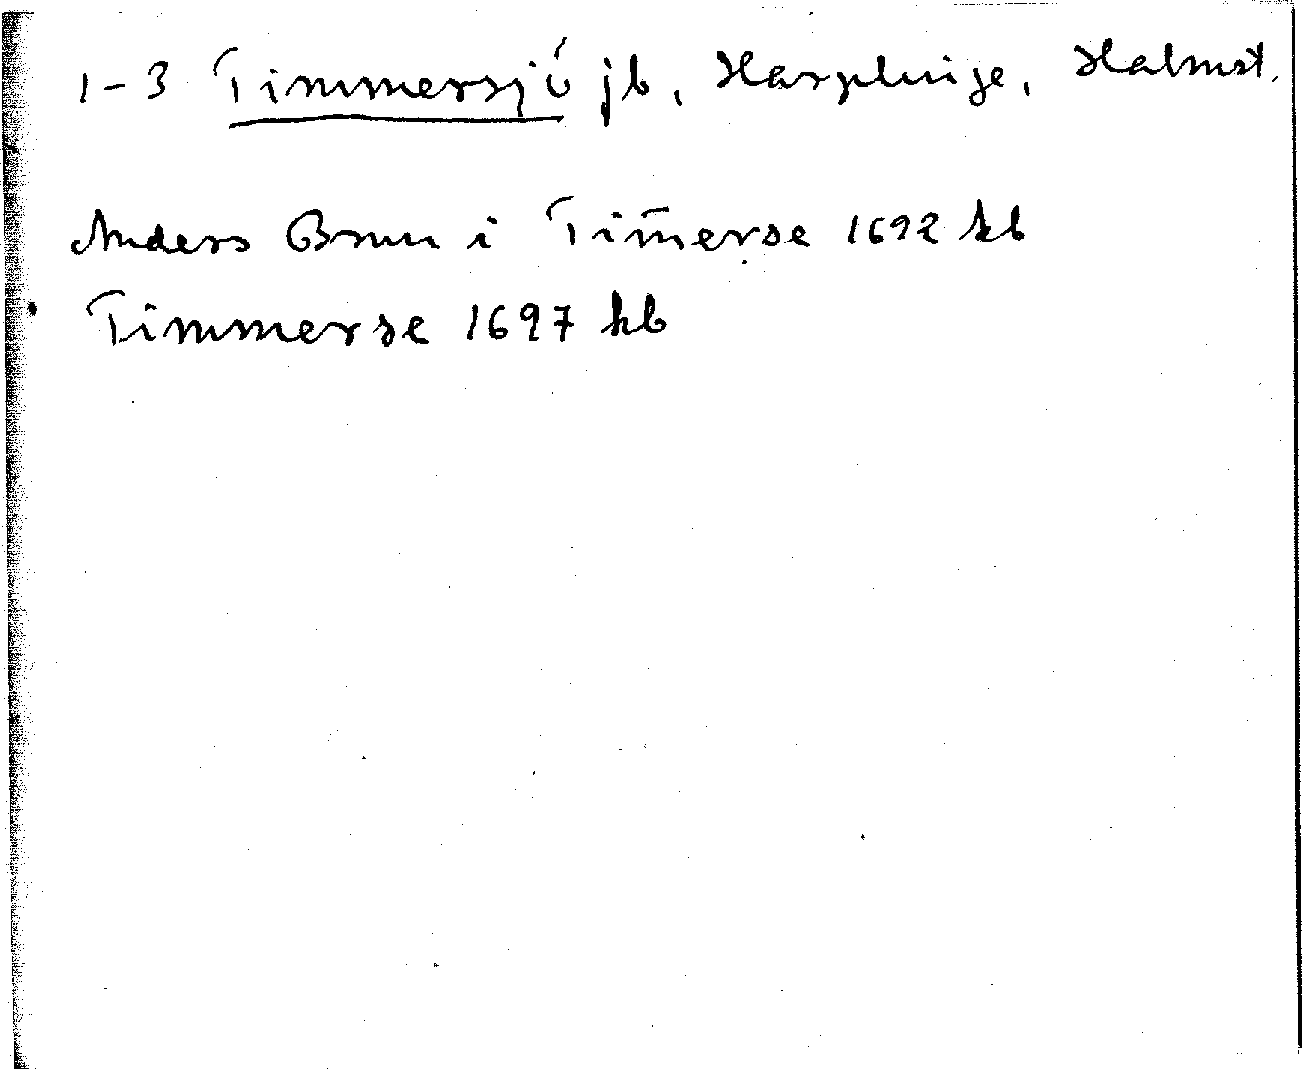 1-3 Timmersjö jb, Harplinge, Halmst.
Anders Brun i Tim̄erse 1692 kb
Timmerse 1697 kb